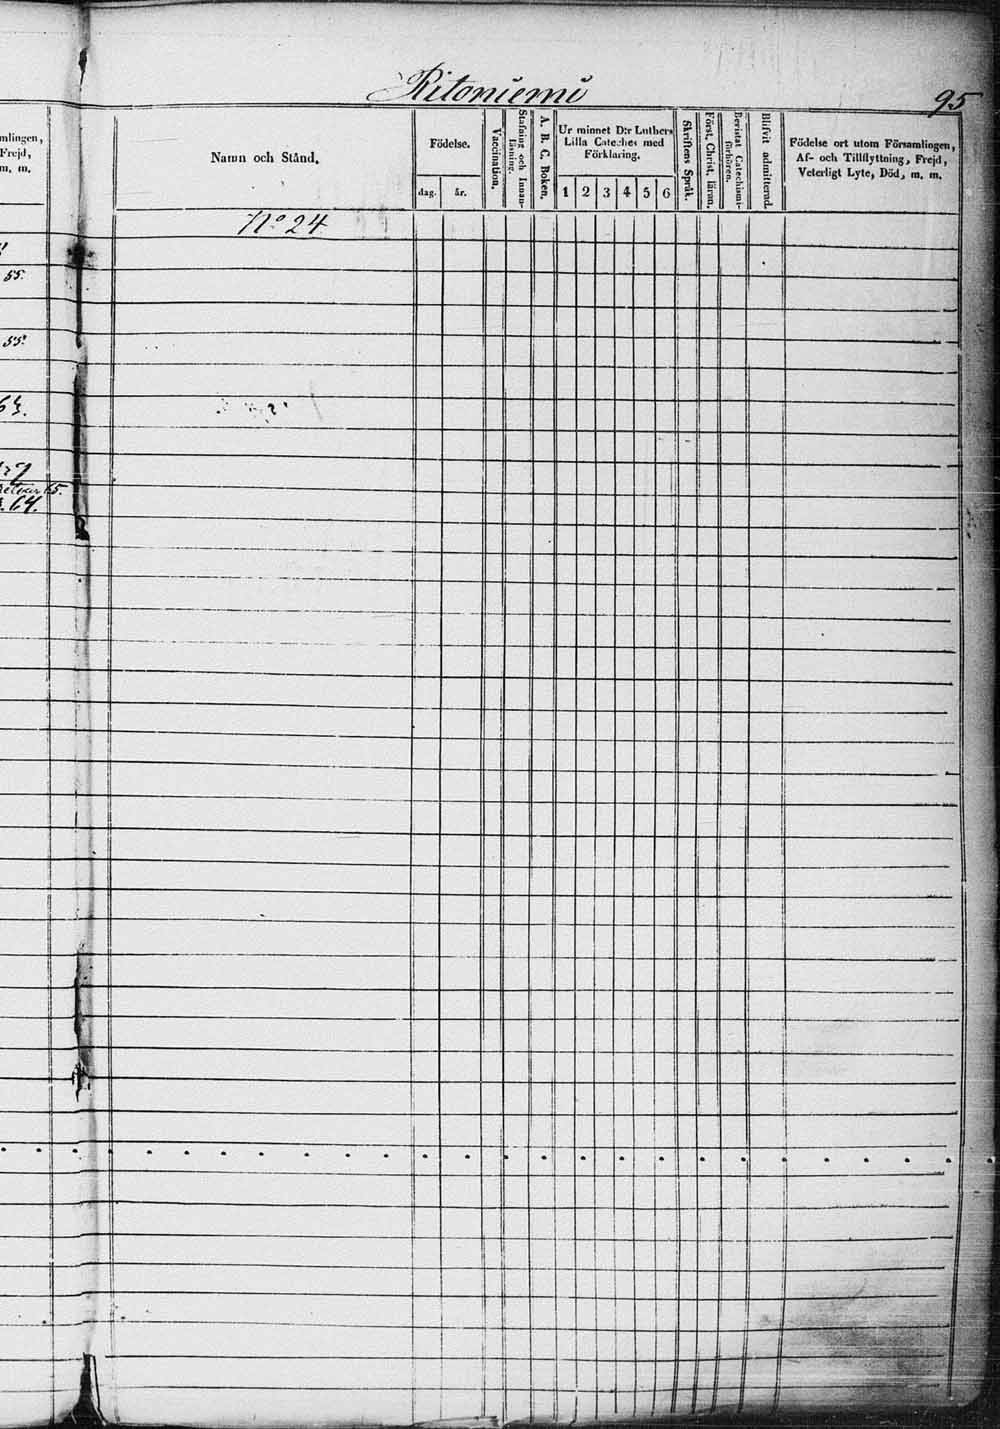 Ritoniemi
95
Namn och Stånd.
Födelse.
dag. år.
Vaccination.
Stafning och Innan-
läsning.
A. B. C. Boken.
Ur minnet D:r Luthers
Lilla Cateches med
Förklaring.
1 2 3 4 5 6
Skriftens Språk.
Först. Christ. läran.
Bevistat Catechismi-
förhören.
Blifvit admitterad.
Födelse ort utom Församlingen,
Af- och Tillflyttning, Frejd,
Veterligt Lyte, Död, m. m.
No 24
mlingen,
Frejd,
m. m.
55.
55.
63.
64.